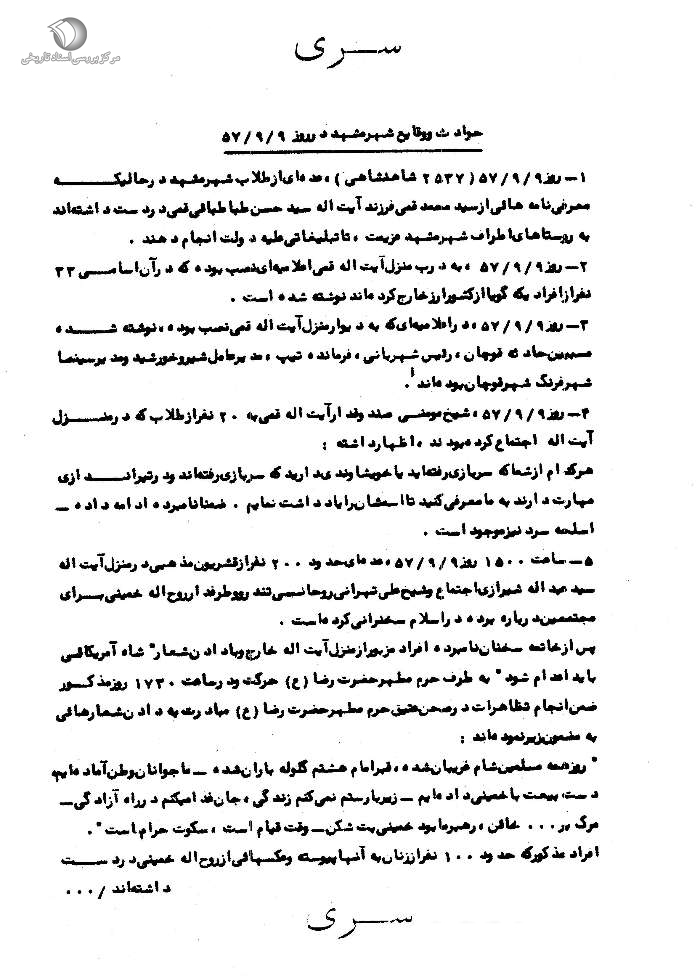 مرکز بررسی اسناد تاریخی
سـری
حوادث ووقایع شهرمشهد درروز ۵۷/۹/۹
۱- روز۵۷/۹/۹ (۲۵۳۷ شاهنشاهی) ، عده‌ای از طلاب شهرمشهد درحالیکـــه
معرفی‌نامه هائی از سید محمد قمی فرزند آیت اله سید حسن طباطبائی قمی دردست داشته‌اند
به روستاهای اطراف شهرمشهد عزیمت ، تا تبلیغاتی علیه دولت انجام دهند .
۲- روز۵۷/۹/۹ ، به درب منزل آیت اله قمی اعلامیه‌ای نصب بوده که درآن اسامـی ۳۳
نفراز افراد یکه گویا از کشور ارز خارج کرده‌اند نوشته شده است .
۳- روز۵۷/۹/۹ ، در اعلامیه‌ای که به دیوار منزل آیت اله قمی نصب بوده ، نوشته شـــده
مسببین حادثه قوچان ، رئیس شهربانی ، فرمانده تیپ ، مدیرعامل شیروخورشید ومدیرسینما
شهرفرنگ شهرقوچان بوده‌اند .
۴- روز۵۷/۹/۹ ، شیخ مومنـی صندوقدار آیت اله قمی به ۲۰ نفراز طلاب که درمنـــزل
آیت اله اجتماع کرده بودند ، اظهارداشته :
هرکدام ازشما که سربازی رفته‌اید یا خویشاوندی دارید که سربازی رفته‌اند ودرتیرانـــدازی
مهارت دارند به ما معرفی کنید تا اسمشان را یادداشت نمایم . ضمنا نامبرده ادامه داده ــ
اسلحه سرد نیز موجود است .
۵- ساعت ۱۵۰۰ روز۵۷/۹/۹ ، عده‌ای حدود ۲۰۰ نفراز قشریون مذهبی درمنزل آیت اله
سید عبداله شیرازی اجتماع وشیخ علی تهرانی روحانـی تندرو وطرفدار روح اله خمینی بـرای
مجتمعین درباره برده در اسلام سخنرانی کرده است .
پس ازخاتمه سخنان نامبرده افراد مزبور از منزل آیت اله خارج وبا دادن شعار" شاه آمریکائـی
باید اعدام شود " به طرف حرم مطهر حضرت رضا (ع) حرکت ودرساعت ۱۷۳۰ روزمذکـور
ضمن انجام تظاهرات درصحن عتیق حرم مطهر حضرت رضا (ع) مبادرت به دادن شعارهائی
به مضمون زیرنموده‌اند :
" روز همه مسلمین شام غریبان شده ، قبر امام هشتم گلوله باران شده ــ ما جوانان وطن آماده‌ایم
دست بیعت با خمینی داده‌ایم ــ زیربارستم نمی‌کنم زندگی ، جان فدا میکنم در راه آزادگی ــ
مرگ بر ۰۰۰ خائن ، رهبرما بود خمینی بت شکن ــ وقت قیام است ، سکوت حرام است " .
افراد مذکورکه حدود ۱۰۰ نفراززنان به آنها پیوسته وعکسهائی از روح اله خمینی دردســت
داشته‌اند /۰۰۰
سـری